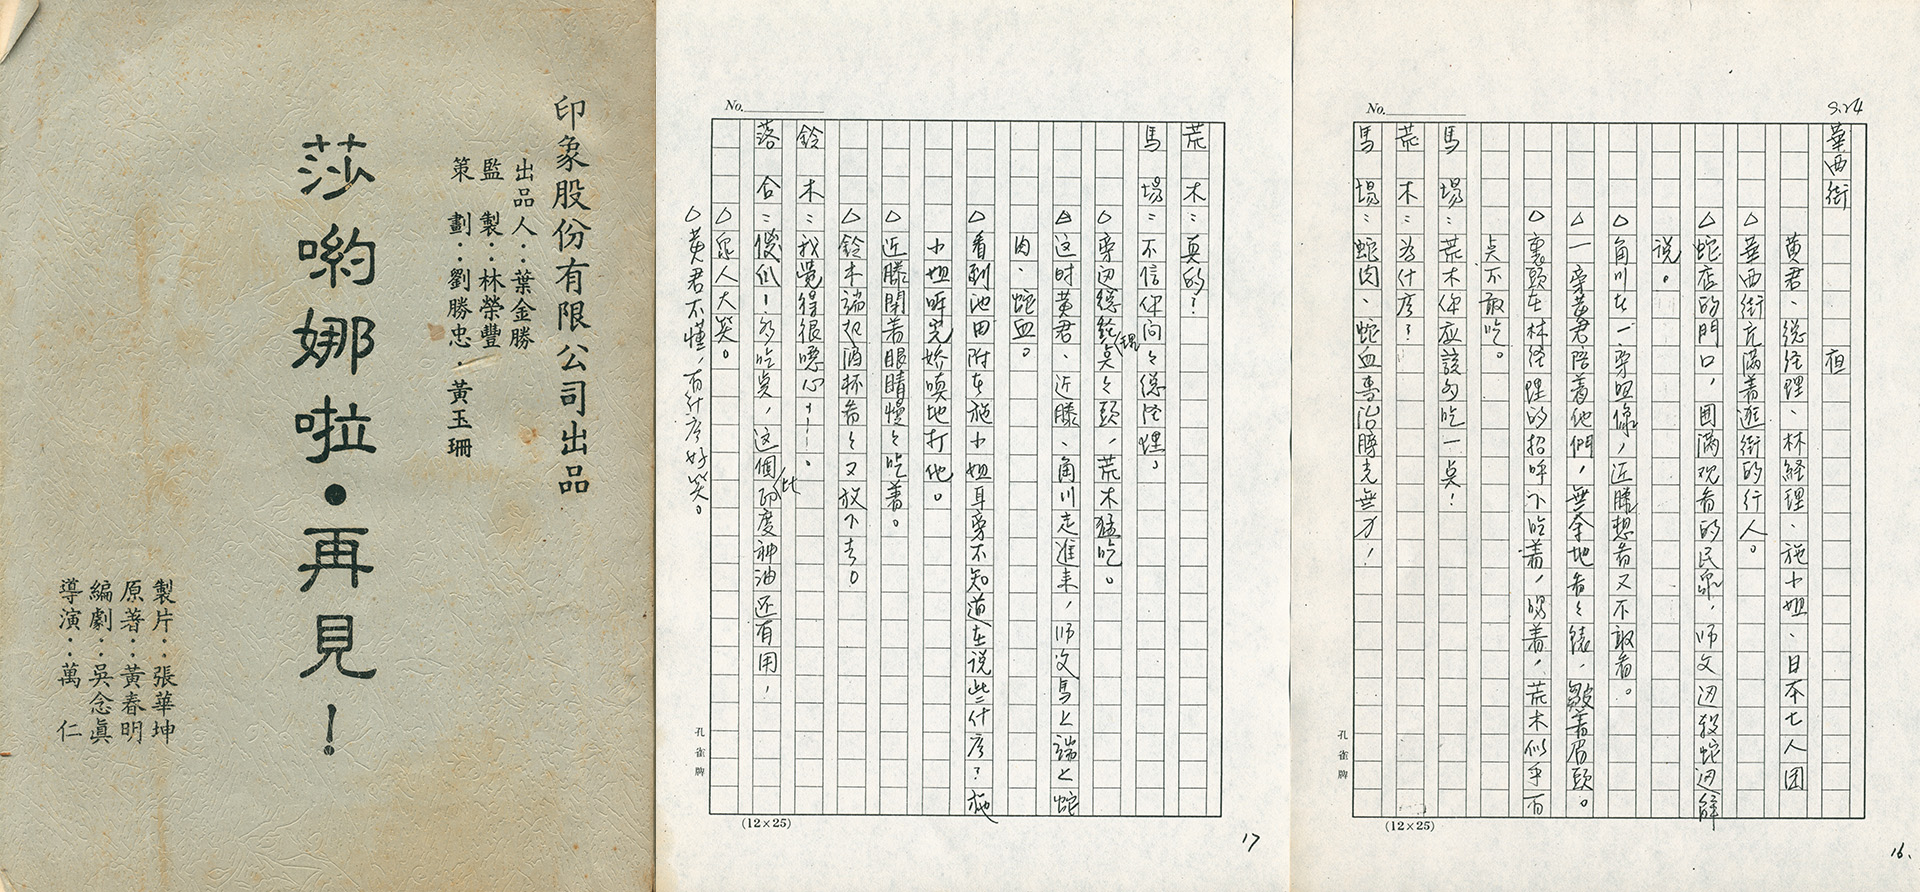 印象股份有限公司出品
出品人：葉金勝
監　製：林榮豐
策　劃：劉勝忠．黃玉珊
莎喲娜啦・再見！
製片：張華坤
原著：黃春明
編劇：吳念眞
導演：萬　仁
No.
荒　木：真的？
馬　場：不信你问々總经理。
△旁边總經理点々頭，荒木猛吃。
△这时黄君、近藤、角川走進来，师父馬上端上蛇
肉、蛇血。
△看到池田附在施小姐耳旁不知道在说些什麼？施
小姐哶完嬌嗔地打他。
△近藤閉着眼睛慢々吃着。
△鈴木端起酒杯看々又放下去。
鈴　木：我覺得很噁心……。
落　合：傻瓜！多吃点，这個比印度神油还有用！
△众人大笑。
△黄君不懂，有什麼好笑。
(12×25)
孔雀牌
17
No.
S.24
華西街　　夜
黄君、總经理、林経理、施小姐、日本七人团
△華西街充滿着逛街的行人。
△蛇店的門口，圍滿观看的民众，师父边殺蛇边解
说。
△角川在一旁照像，近藤想看又不敢看。
△一旁黄君陪着他們，無奈地看々錶，皺着眉頭。
△裏頭在林经理的招呼下吃着，喝着，荒木似乎有
点不敢吃。
馬　場：荒木你应該多吃一点！
荒　木：為什麼？
馬　場：蛇肉、蛇血專治陽尢無力！
(12×25)
孔雀牌
16.